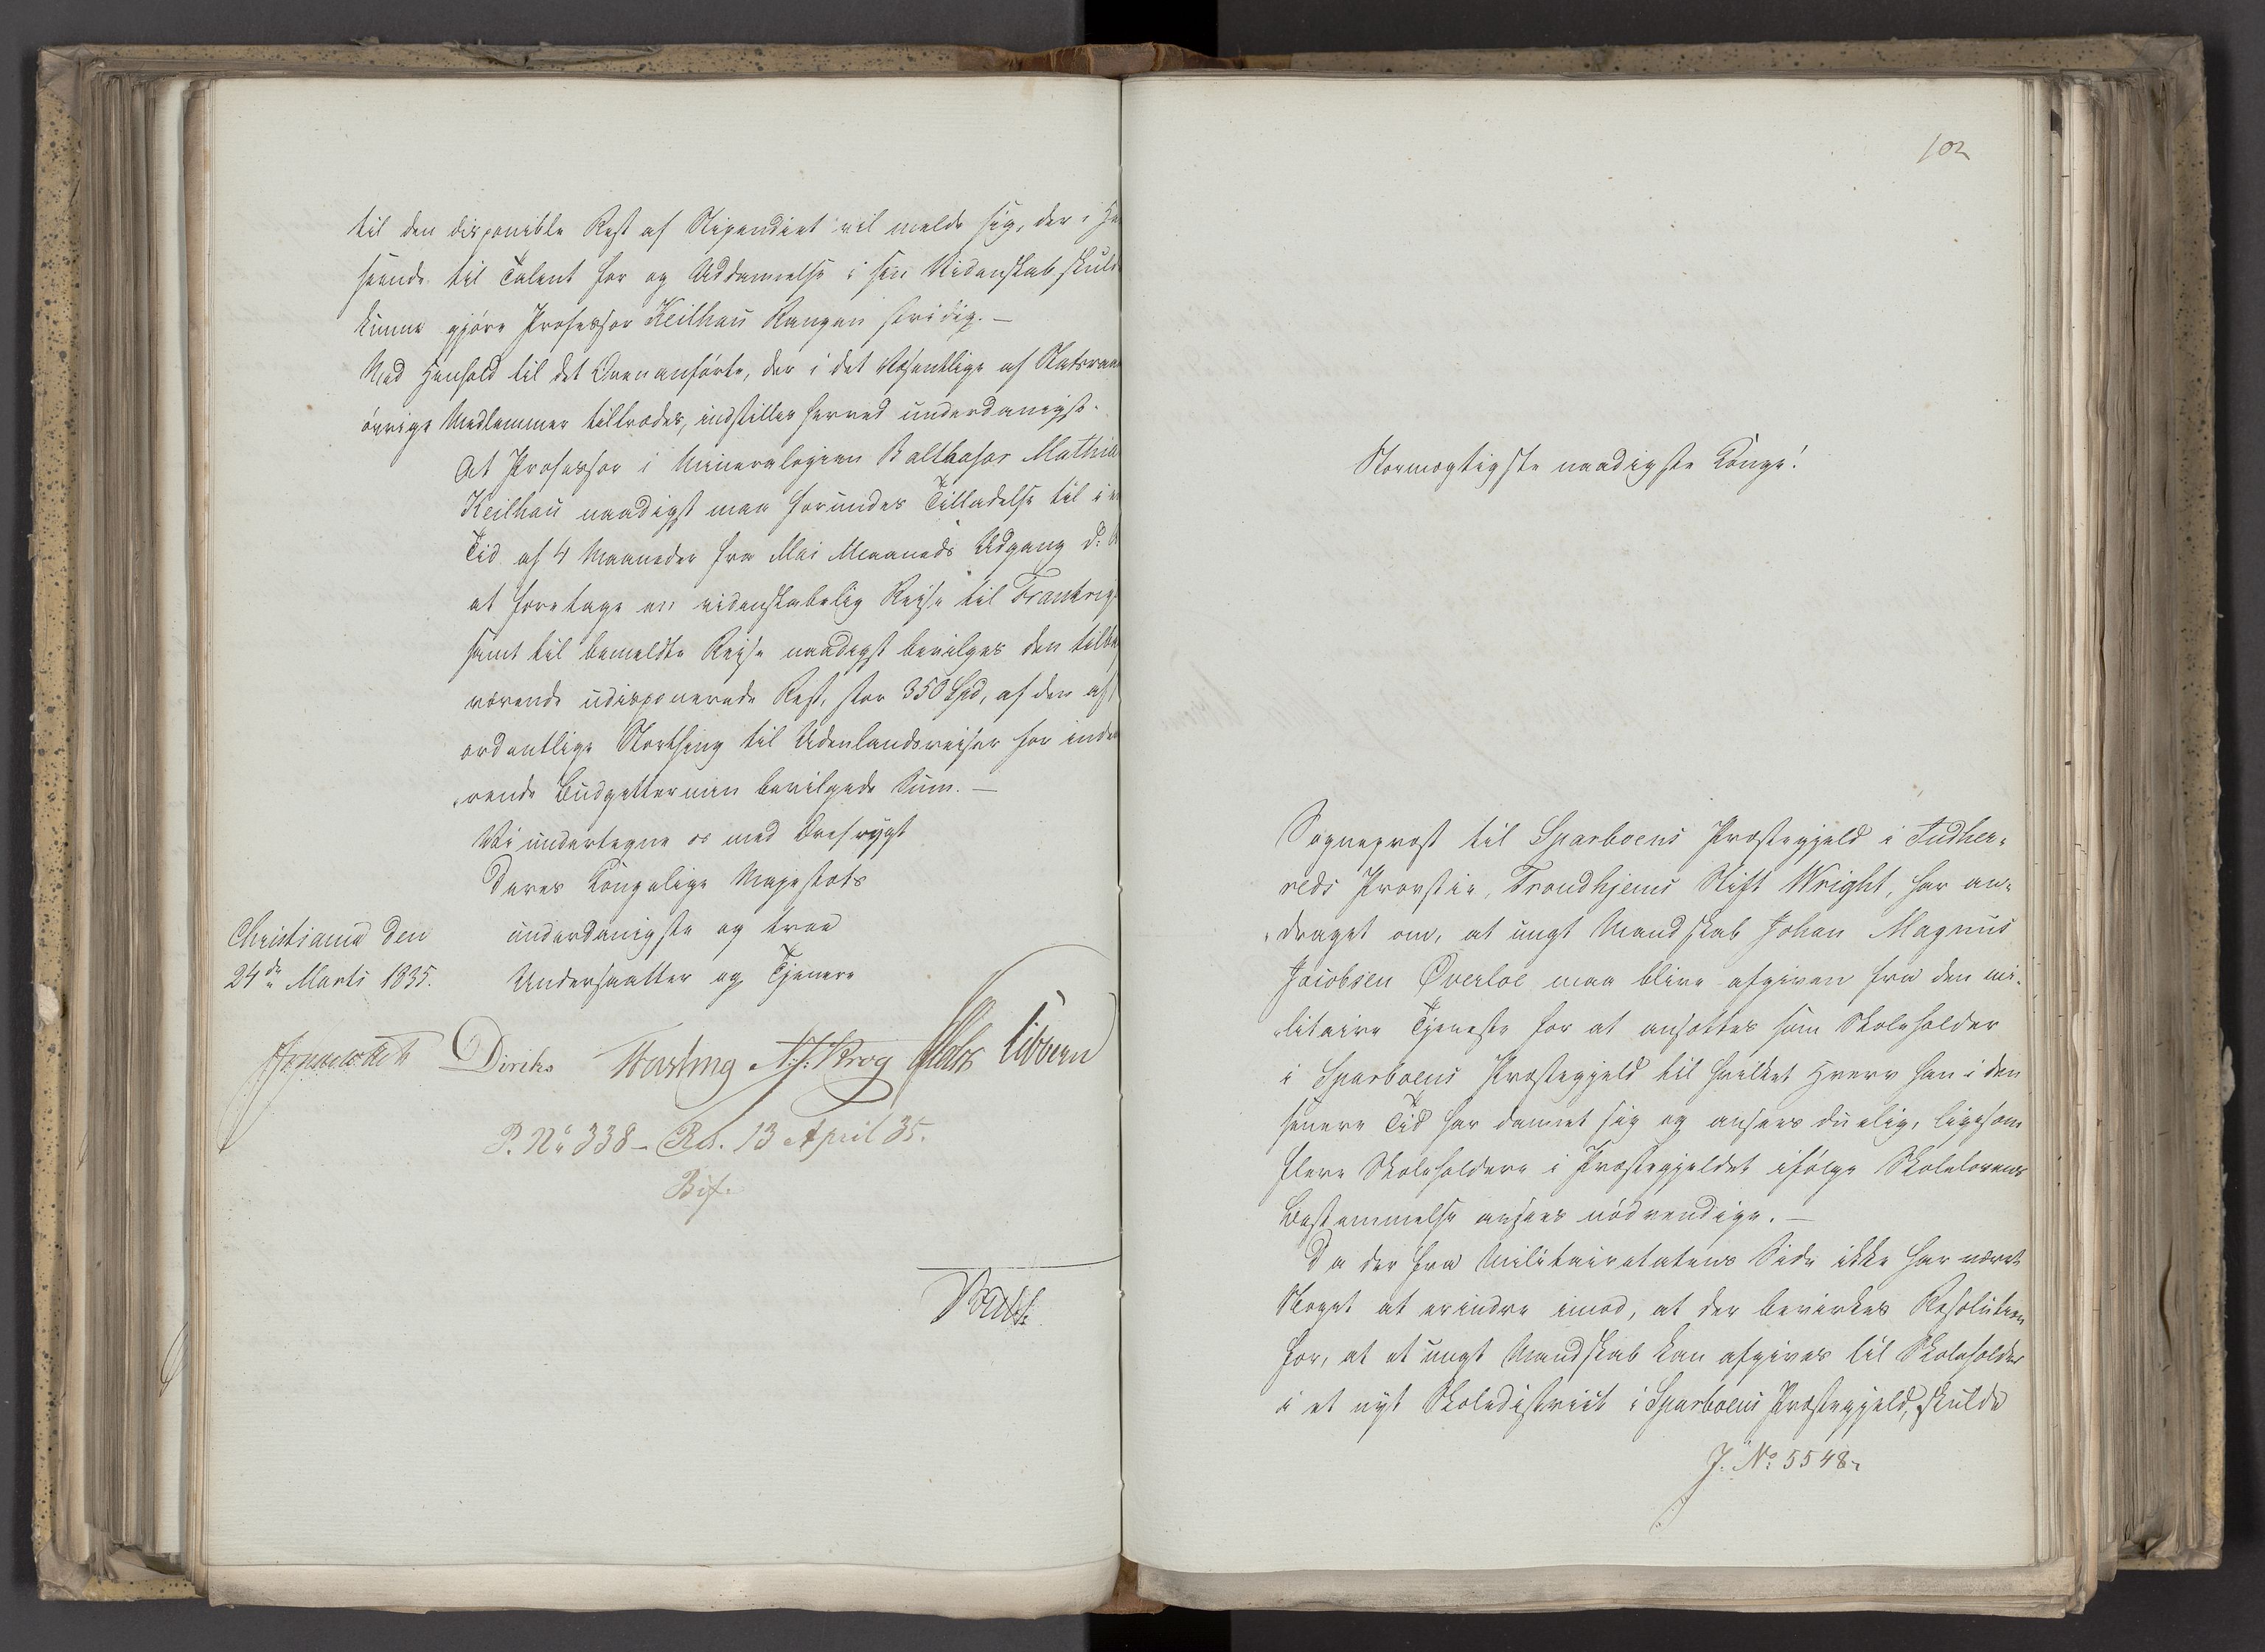 til den disponible Rest af Stipendiet vil melde sig, der i Hen
seende til Talent for og Uddannelse i sin Videnskab skulde
kunne gjøre Professor Keilhau Rangen stridig. —
Med Henhold til det Ovenanførte, der i det Væsentlige af Statsraadets
øvrige Medlemmer tiltrædes, indstilles herved underdanigst.
At Professor i Mineralogien Balthasar Mathias
Keilhau naadigst maa forundes Tilladelse til i en
Tid af 4 Maaneder fra Mai Maaneds Udgang d: A
at foretage en videnskabelig Rejse til Frankrig
samt til bemeldte Rejse naadigst bevilges den tilba
værende udisponerede Rest, stor 350 Spd, af den af
ordentlige Storthing til Udenlandsreiser for inde
rende Budgettermin bevilgede Sum. —
Vi undertegne os med Ærefrygt
Deres Kongelige Majestæts
underdanigste og troe
Undersaatter og Tjenere
Christiania den
24de Marts 1835.
Diriks Vogt
P. No 338 - Res. 13 April 35.
Bif.
102
Stormægtigste naadigste Konge!
Sogneprest til Sparboens Præstegjeld i Indher-
reds Provstie, Trondhjems Stift Wright, har an-
draget om, at ungt Mandskab Johan Magnus
Jacobsen Øverloe maa blive afgiven fra den mi-
litaire Tjeneste for at ansættes som Skoleholder
i Sparboens Præstegjeld til hvilket Hverv han i den
senere Tid har dannet sig og ansees duelig, ligesom
flere Skoleholdere i Præstegjeldet ifølge Skolelovens
Bestemmelse ansees nødvendige. —
Da der fra Militairetatens Side ikke har været
Noget at erindre imod, at der bevirkes Resolution
for, at et ungt Mandskab kan afgives til Skoleholder
i et nyt Skoledistrict i Sparboens Præstegjeld, skulde
J. No 5548